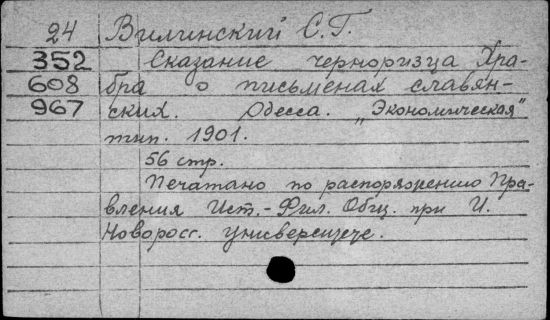 24 Вилинский С.Г.
352 Сказание черноризца Хра-
608 бра о письменах славян-
967 ских. Одесса. „Экономическая"
тип. 1901.
56 стр.
Печатано по распоряжению Пра-
вления Ист.-Фил. Общ. при И.
Новоросс. университете.